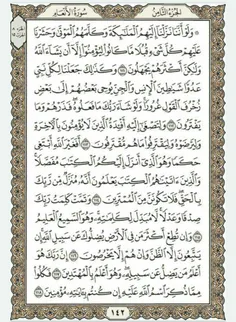 الجزء الثامن سورة الأنعام
۞ وَلَوْ أَنَّنَا نَزَّلْنَا إِلَيْهِمُ الْمَلَٰٓئِكَةَ وَكَلَّمَهُمُ الْمَوْتَىٰ وَحَشَرْنَا
عَلَيْهِمْ كُلَّ شَىْءٍ قُبُلًا مَّا كَانُوا۟ لِيُؤْمِنُوٓا۟ إِلَّآ أَن يَشَآءَ ٱللَّهُ
وَلَٰكِنَّ أَكْثَرَهُمْ يَجْهَلُونَ ١١١ وَكَذَٰلِكَ جَعَلْنَا لِكُلِّ نَبِىٍّ
عَدُوًّا شَيَٰطِينَ ٱلْإِنسِ وَٱلْجِنِّ يُوحِى بَعْضُهُمْ إِلَىٰ بَعْضٍ
زُخْرُفَ ٱلْقَوْلِ غُرُورًا وَلَوْ شَآءَ رَبُّكَ مَا فَعَلُوهُ فَذَرْهُمْ وَمَا
يَفْتَرُونَ ١١٢ وَلِتَصْغَىٰٓ إِلَيْهِ أَفْـِٔدَةُ ٱلَّذِينَ لَا يُؤْمِنُونَ بِٱلْـَٔاخِرَةِ
وَلِيَرْضَوْهُ وَلِيَقْتَرِفُوا۟ مَا هُم مُّقْتَرِفُونَ ١١٣ أَفَغَيْرَ ٱللَّهِ أَبْتَغِى
حَكَمًا وَهُوَ ٱلَّذِىٓ أَنزَلَ إِلَيْكُمُ ٱلْكِتَٰبَ مُفَصَّلًا
وَٱلَّذِينَ ءَاتَيْنَٰهُمُ ٱلْكِتَٰبَ يَعْلَمُونَ أَنَّهُۥ مُنَزَّلٌ مِّن رَّبِّكَ
بِٱلْحَقِّ فَلَا تَكُونَنَّ مِنَ ٱلْمُمْتَرِينَ ١١٤ وَتَمَّتْ كَلِمَتُ رَبِّكَ
صِدْقًا وَعَدْلًا لَّا مُبَدِّلَ لِكَلِمَٰتِهِۦ وَهُوَ ٱلسَّمِيعُ ٱلْعَلِيمُ
١١٥ وَإِن تُطِعْ أَكْثَرَ مَن فِى ٱلْأَرْضِ يُضِلُّوكَ عَن سَبِيلِ ٱللَّهِ إِن
يَتَّبِعُونَ إِلَّا ٱلظَّنَّ وَإِنْ هُمْ إِلَّا يَخْرُصُونَ ١١٦ إِنَّ رَبَّكَ هُوَ
أَعْلَمُ مَن يَضِلُّ عَن سَبِيلِهِۦ وَهُوَ أَعْلَمُ بِٱلْمُهْتَدِينَ ١١٧ فَكُلُوا۟
مِمَّا ذُكِرَ ٱسْمُ ٱللَّهِ عَلَيْهِ إِن كُنتُم بِـَٔايَٰتِهِۦ مُؤْمِنِينَ ١١٨
١٤٢